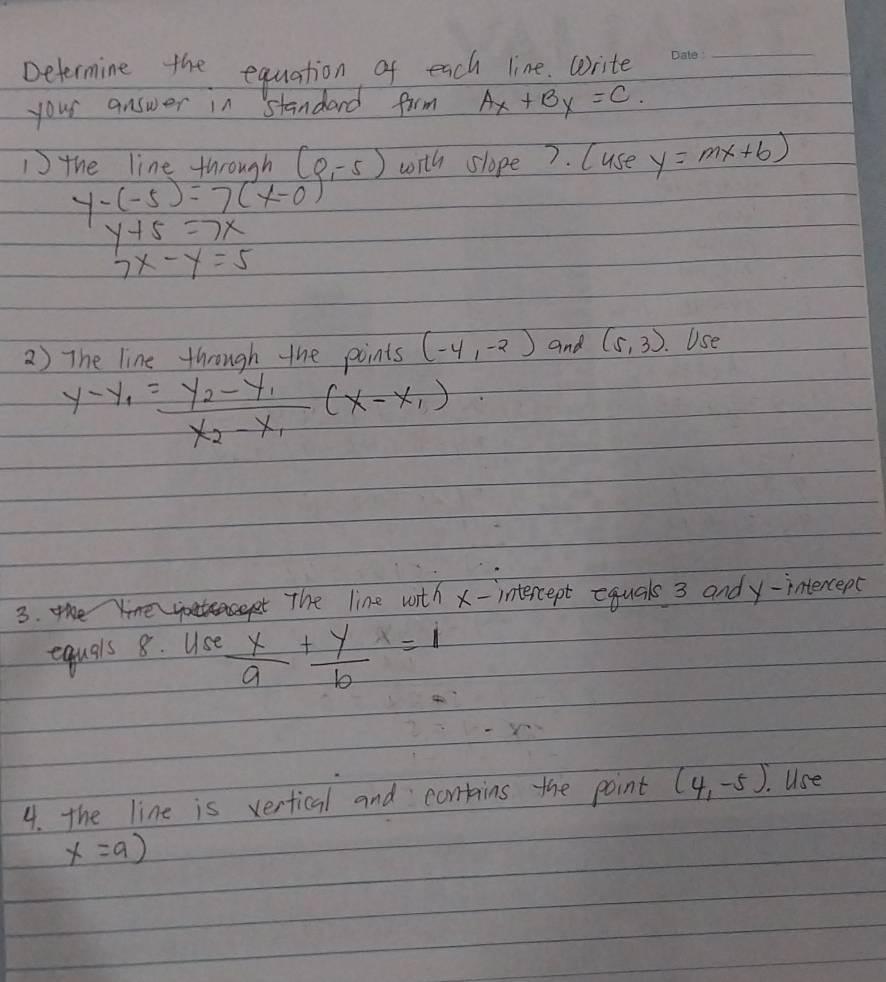 Date:
Determine the equation of each line. Write
your answer in standard form Ax + By = C.
1) the line through (0,-5) with slope 7. (use y = mx+b)
y-(-5) = 7(x-0)
y+5 = 7x
7x - y = 5
2) The line through the points (-4,-2) and (5,3). Use
y-y₁ = y₂-y₁ / x₂-x₁ (x-x₁).
3. The line with x-intercept equals 3 and y-intercept
equals 8. Use x/a + y/b = 1
4. the line is vertical and contains the point (4,-5). Use
x = a)